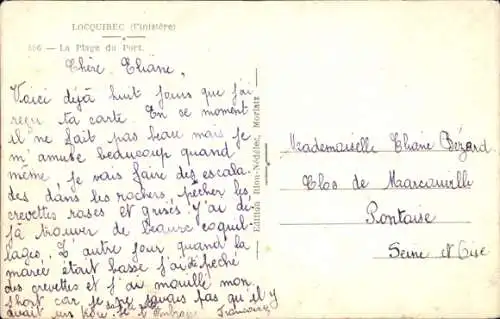 LOCQUIREC (Finistère)
406 — La Plage du Port.
Chère Eliane,
Voici déjà huit jours que j'ai
reçu ta carte. En ce moment
il ne fait pas beau mais je
m'amuse beaucoup quand
même je vais faire des escala
des dans les rochers, pêcher les
crevettes roses et grises. J'ai dé-
jà trouver de beaux coquil-
lages. L'autre jour quand la
marée était basse j'ai pêché
des crevettes et j'ai mouillé mon
short car je ne savais pas qu'il y
avait un
Françoise
Edition Rion-Nédélec, Morlaix
Mademoiselle Eliane Bézard
Clos de
Pontoise
Seine et Oise